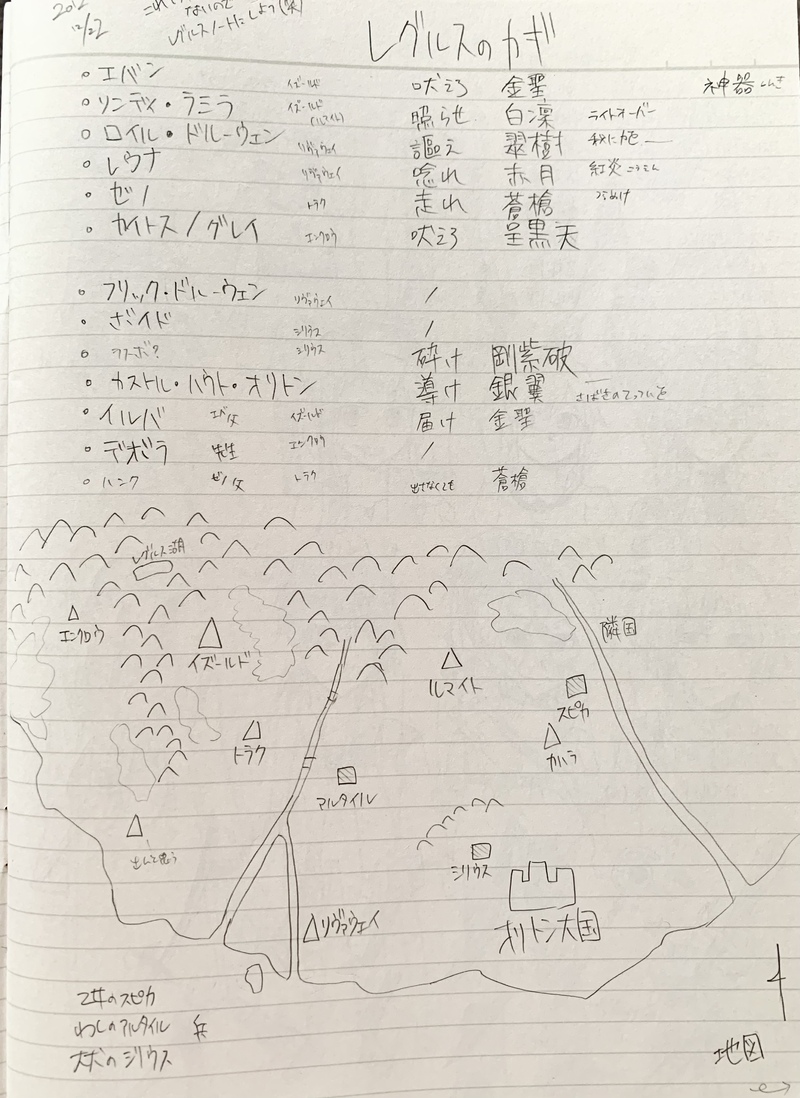 2012
12/22
ないので
レグルスノートにしよう(笑)
レグルスのカギ
神器 しんき
・エバン イズールド 吠えろ 金聖
・リンディ・ラミラ イズールド (ルマイト) 照らせ 白凜 ライトオーバー
・ロイル・ドルーウェン リヴァウェイ 謳え 翠樹
・レウナ リヴァウェイ 唸れ 赤月 紅炎 こうえん
・ゼノ トラク 走れ 蒼槍
・カイトス/グレイ エンクロウ 吠えろ 呈黒天
・フリック・ドルーウェン リヴァウェイ /
・ざボイド シリウス /
・ラフーボ? シリウス 砕け 剛紫破
・カストル・ハウト・オリトン 導け 銀翼 さばきのてっついを
・イルバ エバ父 イズールド 届け 金聖
・デボラ 先生 エンクロウ /
・ハンク ゼノ父 トラク 出せなくても 蒼槍
レグルス湖
エンクロウ
イズールド
隣国
ルマイト
スピカ
トラク
カハラ
アルタイル
出んと思う
シリウス
リヴァウェイ
オリトン大国
乙女のスピカ
わしのアルタイル 兵
大犬のシリウス
地図